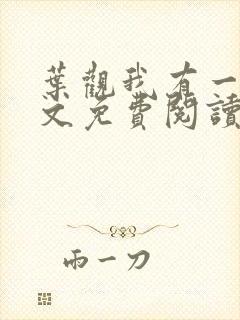 葉觀我有一
文免費閱讀
雨一刀